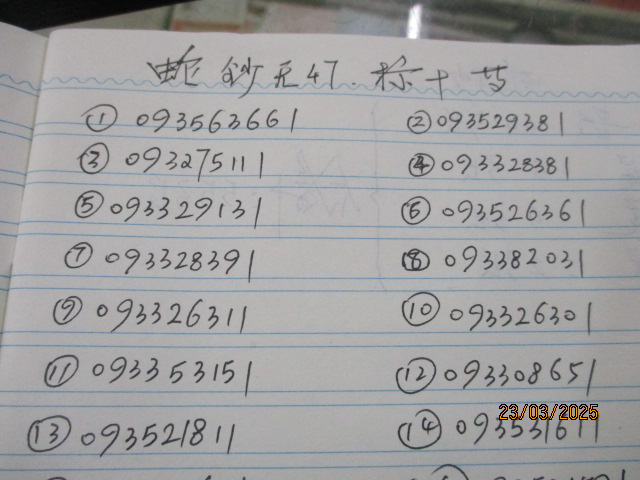 蛇钞无47.标十节
① 0935636661 ② 093529381
③ 093275111 ④ 093328381
⑤ 093329131 ⑥ 093526361
⑦ 093328391 ⑧ 093382031
⑨ 093326311 ⑩ 093326301
⑪ 093353151 ⑫ 093308651
⑬ 093521811 ⑭ 093531611
23/03/2025